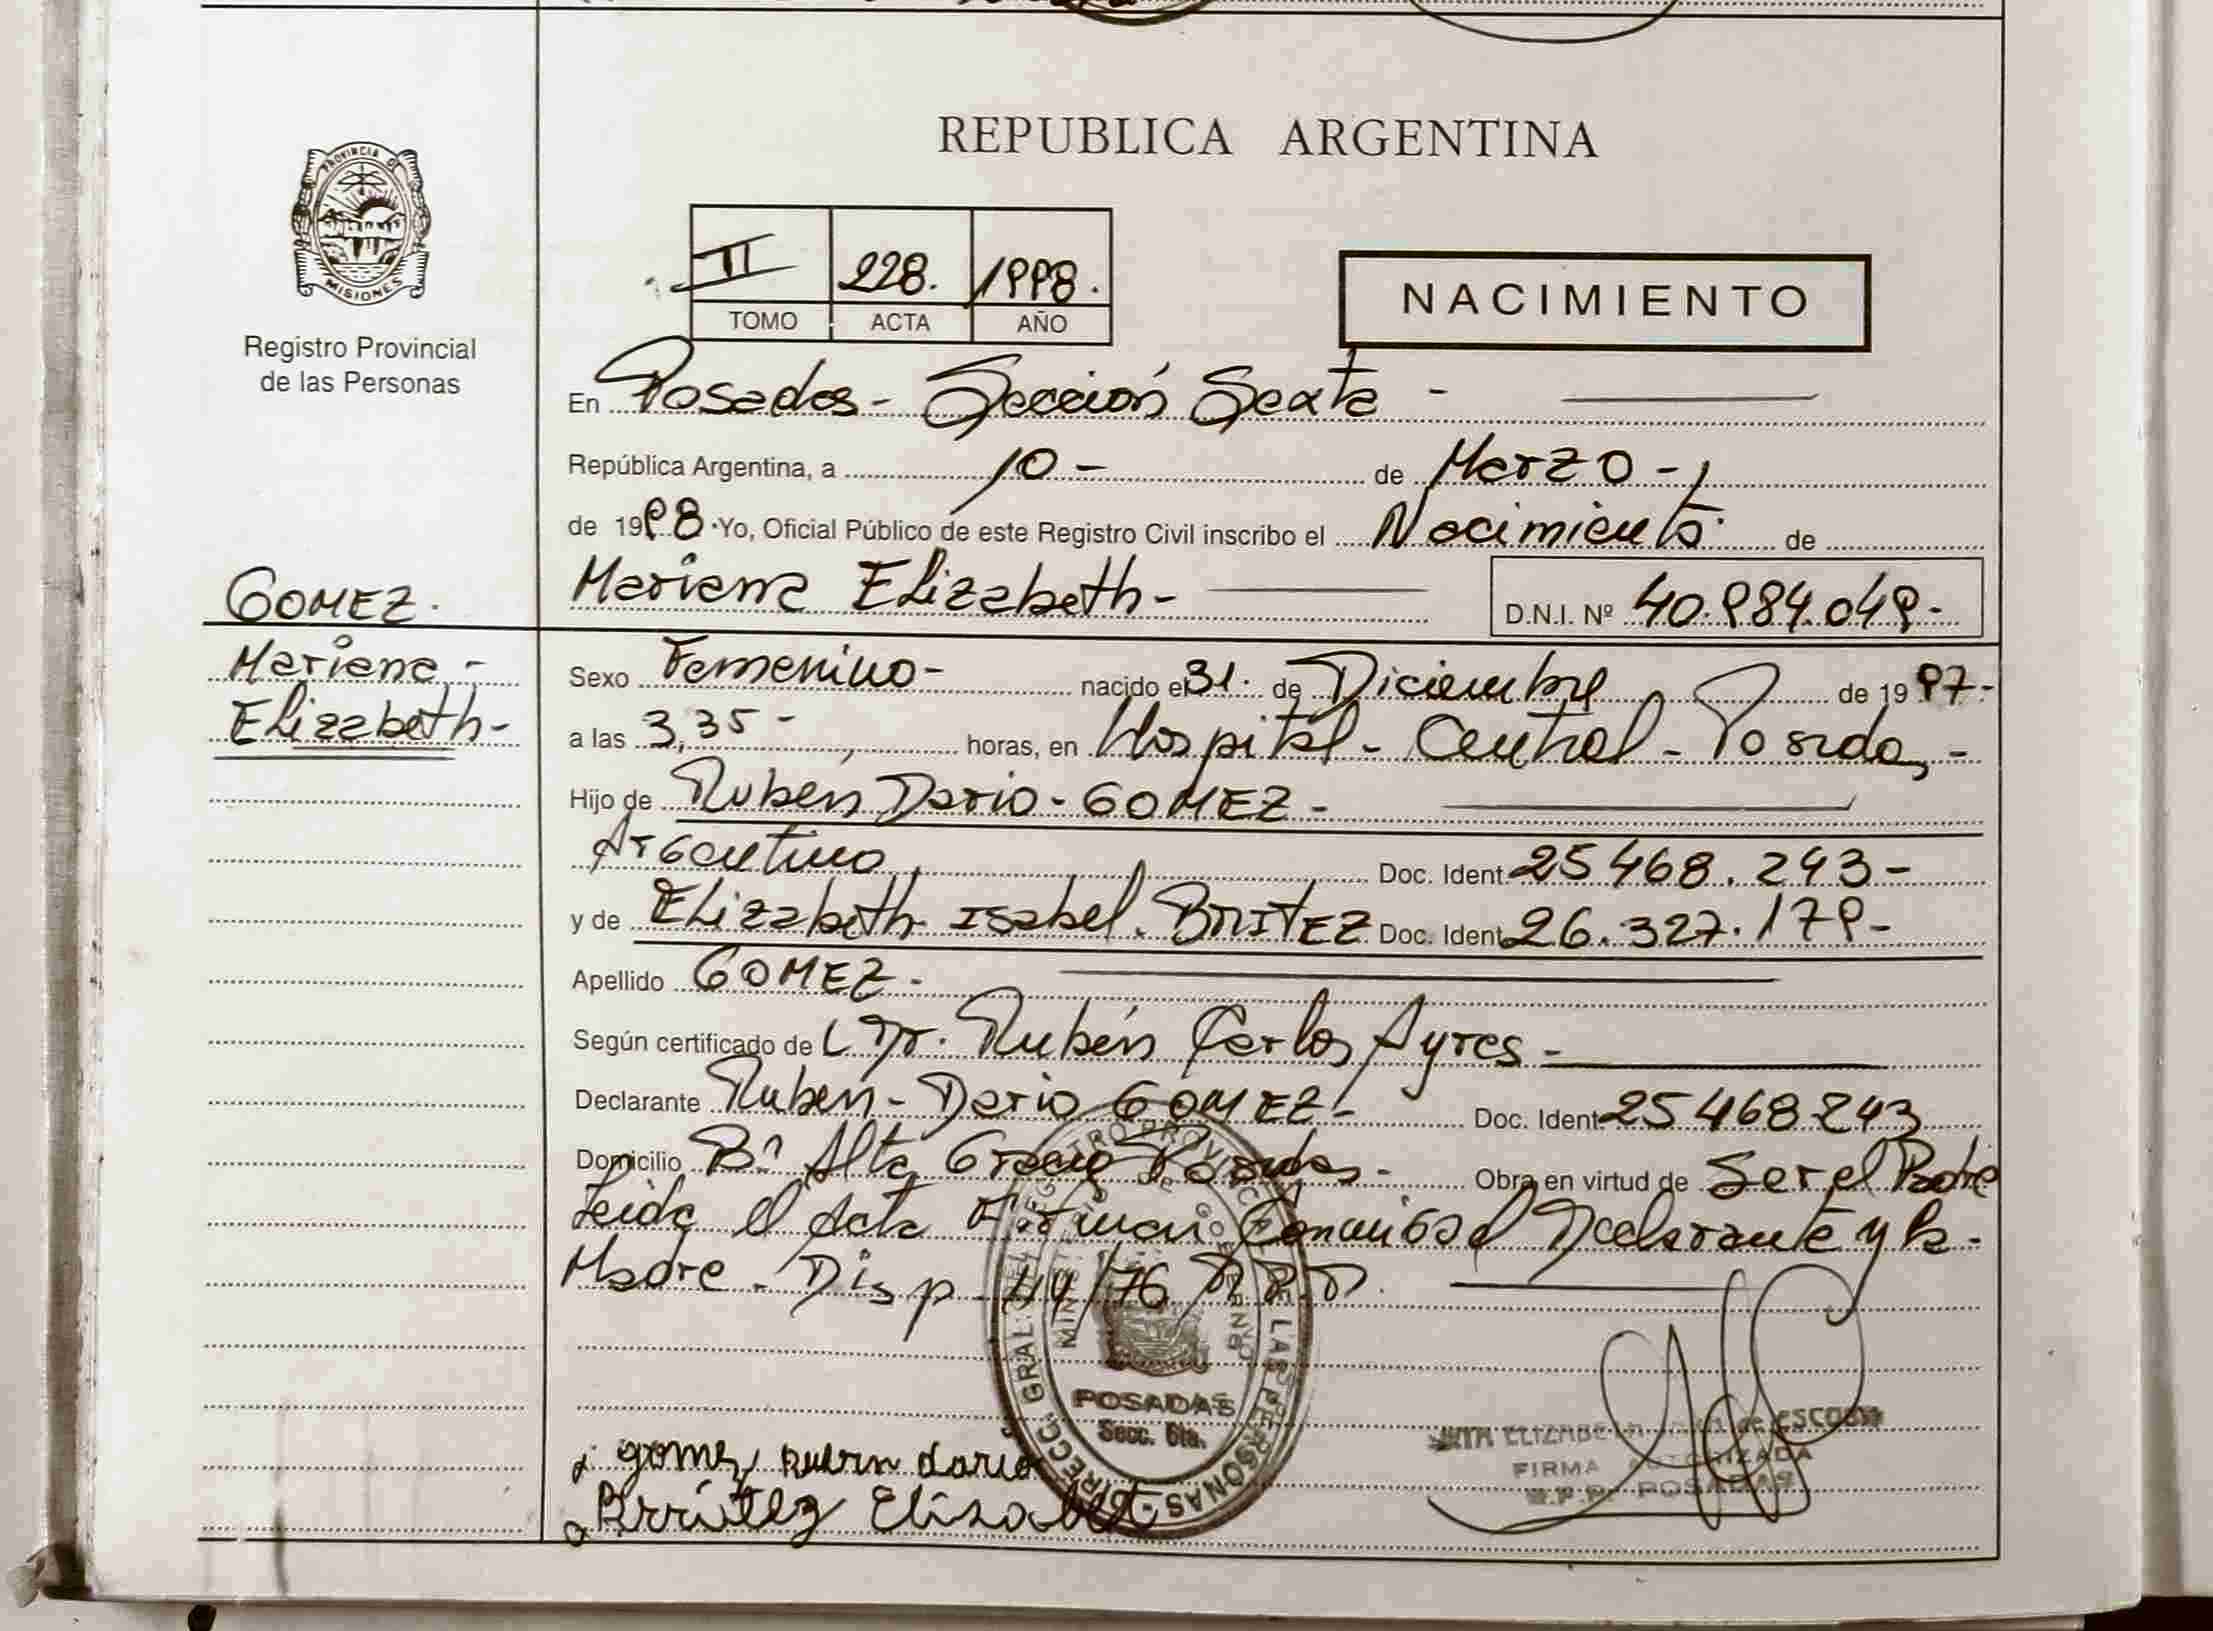 REPUBLICA ARGENTINA
PROVINCIA DE
MISIONES
Registro Provincial
de las Personas
II 228. 1998.
TOMO ACTA AÑO
NACIMIENTO
En Posadas - Sección Sexta -
República Argentina, a 10 - de Marzo -
de 1998 · Yo, Oficial Público de este Registro Civil inscribo el Nacimiento de
Mariana Elizabeth - D.N.I. Nº 40.984.049 -
GOMEZ.
Mariana -
Elizabeth -
Sexo Femenino - nacido el 31. de Diciembre de 1997 -
a las 3,35 - horas, en Hospital - Central - Posadas -
Hijo de Rubén Dario - GOMEZ -
Argentino Doc. Ident. 25 468. 243 -
y de Elizabeth Isabel. BRITEZ Doc. Ident. 26. 327. 179 -
Apellido GOMEZ -
Según certificado de Dr. Rubén Carlos Ayres -
Declarante Rubén - Dario GOMEZ - Doc. Ident. 25 468 243
Domicilio Bº Alta Gracia Posadas - Obra en virtud de Ser el Padre
Leida el Acta Firman Conmigo el Declarante y la -
Madre - Disp - 44/76 R.P.P.
DIRECC. GRAL. DEL REGISTRO PROVINCIAL DE LAS PERSONAS
MINISTERIO DE GOBIERNO
POSADAS
Secc. 6ta.
gomez ruben dario
Brrítez Elisabet
ELIZABETH de ESCOBAR
FIRMA AUTORIZADA
R.P.P. POSADAS